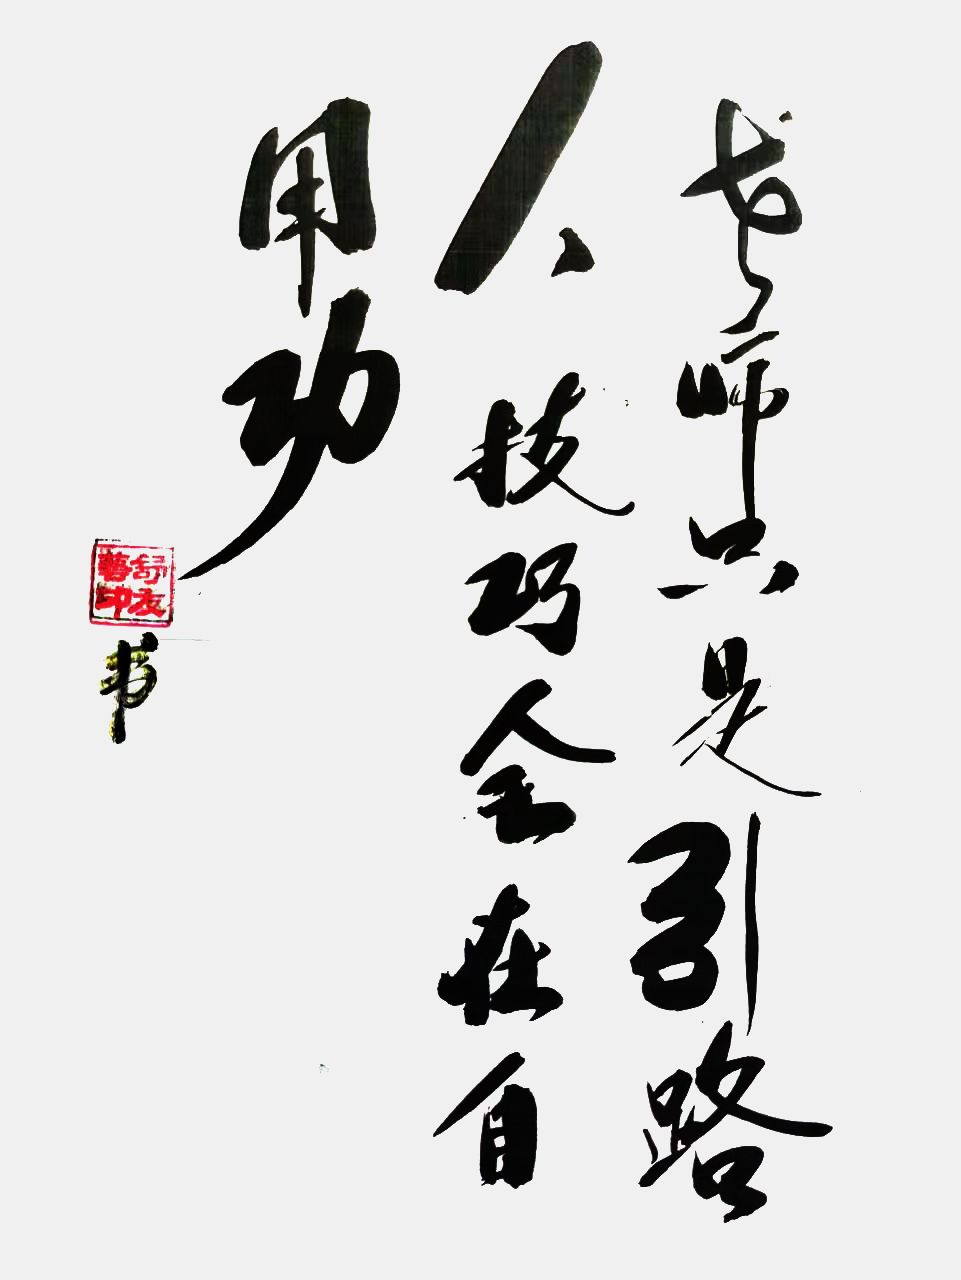 老师只是引路
人技巧全在自
用功
舒友
印
书